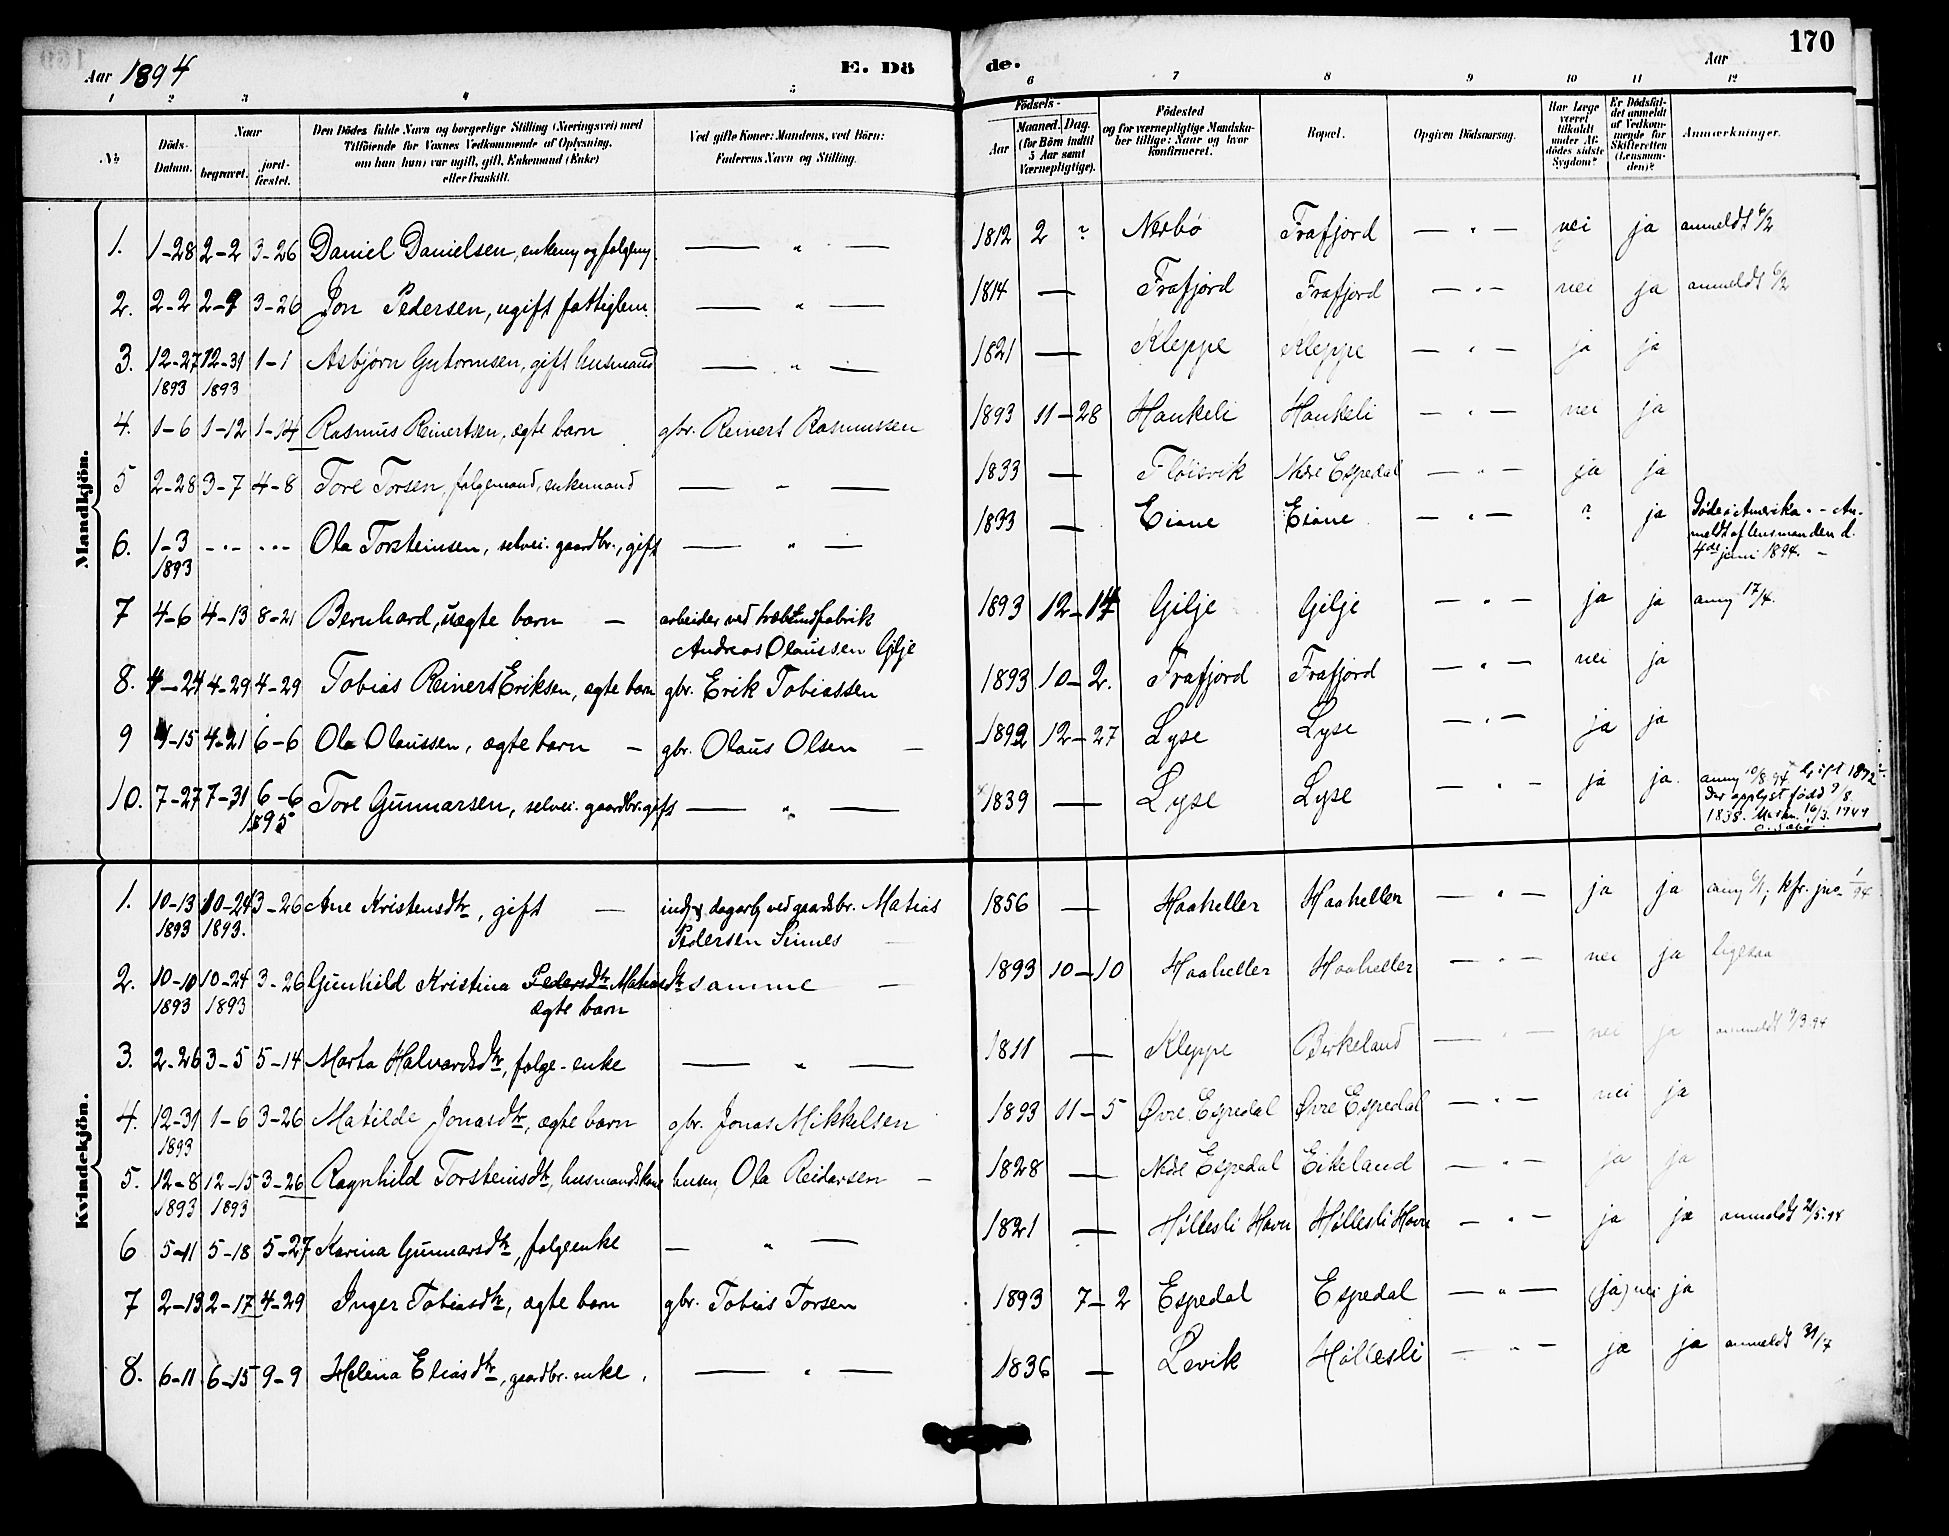 170
Aar 1894 E. Dö de. Aar
1 2 3 4 5 6 7 8 9 10 11 12
№
Döds-Datum.
Naar
begravet.
jord-fæstet.
Den Dödes fulde Navn og borgerlige Stilling (Næringsvei) med
Tilföiende for Voxnes Vedkommende af Oplysning,
om han (hun) var ugift, gift, Enkemand (Enke)
eller fraskilt.
Ved gifte Koner: Mandens, ved Börn:
Faderens Navn og Stilling.
Födsels-
Aar
Maaned. Dag.
(for Börn indtil
5 Aar samt
Værnepligtige).
Födested
og for værnepligtige Mandska-
ber tillige: Naar og hvor
konfirmeret.
Bopæl.
Opgiven Dödsaarsag.
Har Læge
været
tilkaldt
under Af-
dödes sidste
Sygdom?
Er Dödsfal-
det anmeldt
af Vedkom-
mende for
Skifteretten
(Lensman-
den)?
Anmærkninger.
Mandkjön.
1. 1-28 2-2 3-26 Daniel Danielsen, enkem og folgem. — " — 1812 2 ? Nerbø Frafjord — " — nei ja anmeldt 6/2
2. 2-2 2-9 3-26 Jon Pedersen, ugift fattiglem — " — 1814 — Frafjord Frafjord — " — nei ja anmeldt 6/2
3. 12-27 12-31 1-1 Asbjørn Gutormsen, gift husmand — " — 1821 — Kleppe Kleppe — " — ja ja
1893 1893
4. 1-6 1-12 1-14 Rasmus Reinertsen, ægte barn gbr. Reinert Rasmussen 1893 11-28 Haukeli Haukeli — " — nei ja
5 2-28 3-7 4-8 Tore Torsen, folgemand, enkemand — " — 1833 — Fløisvik Nedre Espedal — " — ja ja
6. 1-3 -.- ... Ola Torsteinsen, selvei. gaardbr., gift — " — 1833 — Eiane Eiane — " — ? ja Døde i Amerika. - An-
1893 meldt af lensmanden d.
4de juni 1894. —
7 4-6 4-13 8-21 Bernhard, uægte barn — arbeider ved træbundfabrik 1893 12-14 Gilje Gilje — " — ja ja anm 17/4.
Andreas Olaussen Gilje
8. 4-24 4-29 4-29 Tobias Reinert Eriksen, ægte barn gbr. Erik Tobiassen 1893 10-2. Frafjord Frafjord — " — nei ja
9 4-15 4-21 6-6 Ola Olaussen, ægte barn — gbr. Olaus Olsen — 1892 12-27 Lyse Lyse — " — ja ja
10. 7-27 7-31 6-6 Tore Gunnarsen, selvei. gaardbr. gift — " — 1839 — Lyse Lyse — " — ja ja. anm 10/8 94. Gift 1872
1895 der opplyst født 9/8
1838. 16/3. 1944
Kvindekjön.
1. 10-13 10-24 3-26 Ane Kristensdtr, gift — ind. dagarb ved gaardsbr. Matias 1856 — Haaheller Haaheller — " — ja ja kfr. jno 1/94.
1893 1893. Pedersen Sinnes —
2. 10-10 10-24 3-26 Gunhild Kristina Pedersdtr Matiasdtr samme — 1893 10-10 Haaheller Haaheller — " — nei ja ligesaa
1893 1893 ægte barn
3. 2-26 3-5 5-14 Marta Halvardsdtr, folge-enke — " — 1811 — Kleppe Birkeland — " — nei ja anmeldt 9/3.94
4. 12-31 1-6 3-26 Matilde Jonasdtr, ægte barn gbr. Jonas Mikkelsen 1893 11-5 Øvre Espedal Øvre Espedal — " — nei ja
1893
5. 12-8 12-15 3-26 Ragnhild Torsteinsdtr, husmandskone husm, Ola Reidarsen — 1828 — Nedre Espedal Eikeland — " — ja ja
1893 1893
6 5-11 5-18 5-27 Karina Gunnarsdtr, folgeenke — " — 1821 — Høllesli Havn Høllesli Havn — " — ja ja anmeldt 21/5.94
7 2-13 2-17 4-29 Inger Tobiasdtr, ægte barn gbr. Tobias Torsen 1893 7-2 Espedal Espedal — " — (ja) nei ja
8. 6-11 6-15 9-9 Helena Eliasdtr, gaardbr. enke. — " — 1836 — Levik Høllesli — " — ja ja anmeldt 31/7